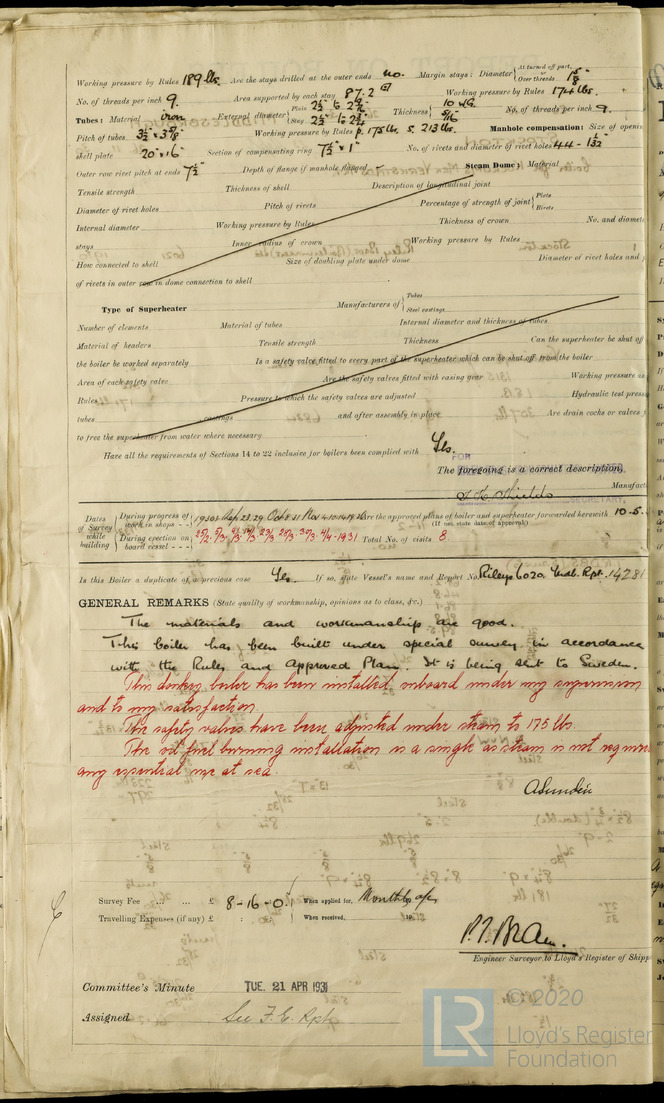 Working pressure by Rules 189 lbs. Are the stays drilled at the outer ends no. Margin stays: Diameter { At turned off part, Over threads 1 5/8"
No. of threads per inch 9. Area supported by each stay 87.2 Working pressure by Rules 174 lbs.
Tubes: Material iron External diameter { Plain Stay Thickness { 10 WG. 5/16 No. of threads per inch 9.
Pitch of tubes 3 1/2" x 3 5/8" Working pressure by Rules p. 175 lbs. s. 213 lbs. Manhole compensation: Size of openin
shell plate 20" x 16" Section of compensating ring 7 1/2" x 1" No. of rivets and diameter of rivet holes 44 - 1 1/32"
Outer row rivet pitch at ends 7 1/2" Depth of flange if manhole flanged Steam Dome: Material
Tensile strength Thickness of shell Description of longitudinal joint
Diameter of rivet holes Pitch of rivets Percentage of strength of joint { Plate Rivets
Internal diameter Working pressure by Rules Thickness of crown No. and diamete
stays Inner radius of crown Working pressure by Rules
How connected to shell Size of doubling plate under dome Diameter of rivet holes and
of rivets in outer row in dome connection to shell
Type of Superheater Manufacturers of { Tubes Steel castings
Number of elements Material of tubes Internal diameter and thickness of tubes
Material of headers Tensile strength Thickness Can the superheater be shut off
the boiler be worked separately Is a safety valve fitted to every part of the superheater which can be shut off from the boiler
Area of each safety valve Are the safety valves fitted with easing gear Working pressure as
Rules Pressure to which the safety valves are adjusted Hydraulic test press
tubes castings and after assembly in place Are drain cocks or valves
to free the superheater from water where necessary
Have all the requirements of Sections 14 to 22 inclusive for boilers been complied with Yes.
FOR
The foregoing is a correct description,
Shields SECRETARY. Manufact
Dates of Survey while building { During progress of work in shops - - Are the approved plans of boiler and superheater forwarded herewith 10-5-
(If not state date of approval.)
During erection on board vessel - - - 1931 Total No. of visits 8
Is this Boiler a duplicate of a previous case Yes. If so, state Vessel's name and Report No. Rileys 6020 Mdb. Rpt. 14281
GENERAL REMARKS (State quality of workmanship, opinions as to class, &c.)
The materials and workmanship are good.
This boiler has been built under special survey in accordance
with the Rules and Approved Plan. It is being sent to Sweden.
This donkey boiler has been installed onboard under my supervision
and to my satisfaction
The safety valves have been adjusted under steam to 175 lbs.
The oil fuel burning installation is a single as steam is not require
any essential use at sea.
Survey Fee ... ... £ 8-16-0 When applied for, Monthly a/c
Travelling Expenses (if any) £ : : When received, 19
Engineer Surveyor to Lloyd's Register of Shipp
Committee's Minute TUE. 21 APR 1931
Assigned See F.E. Rpt.
© 2020
LR Lloyd's Register
Foundation